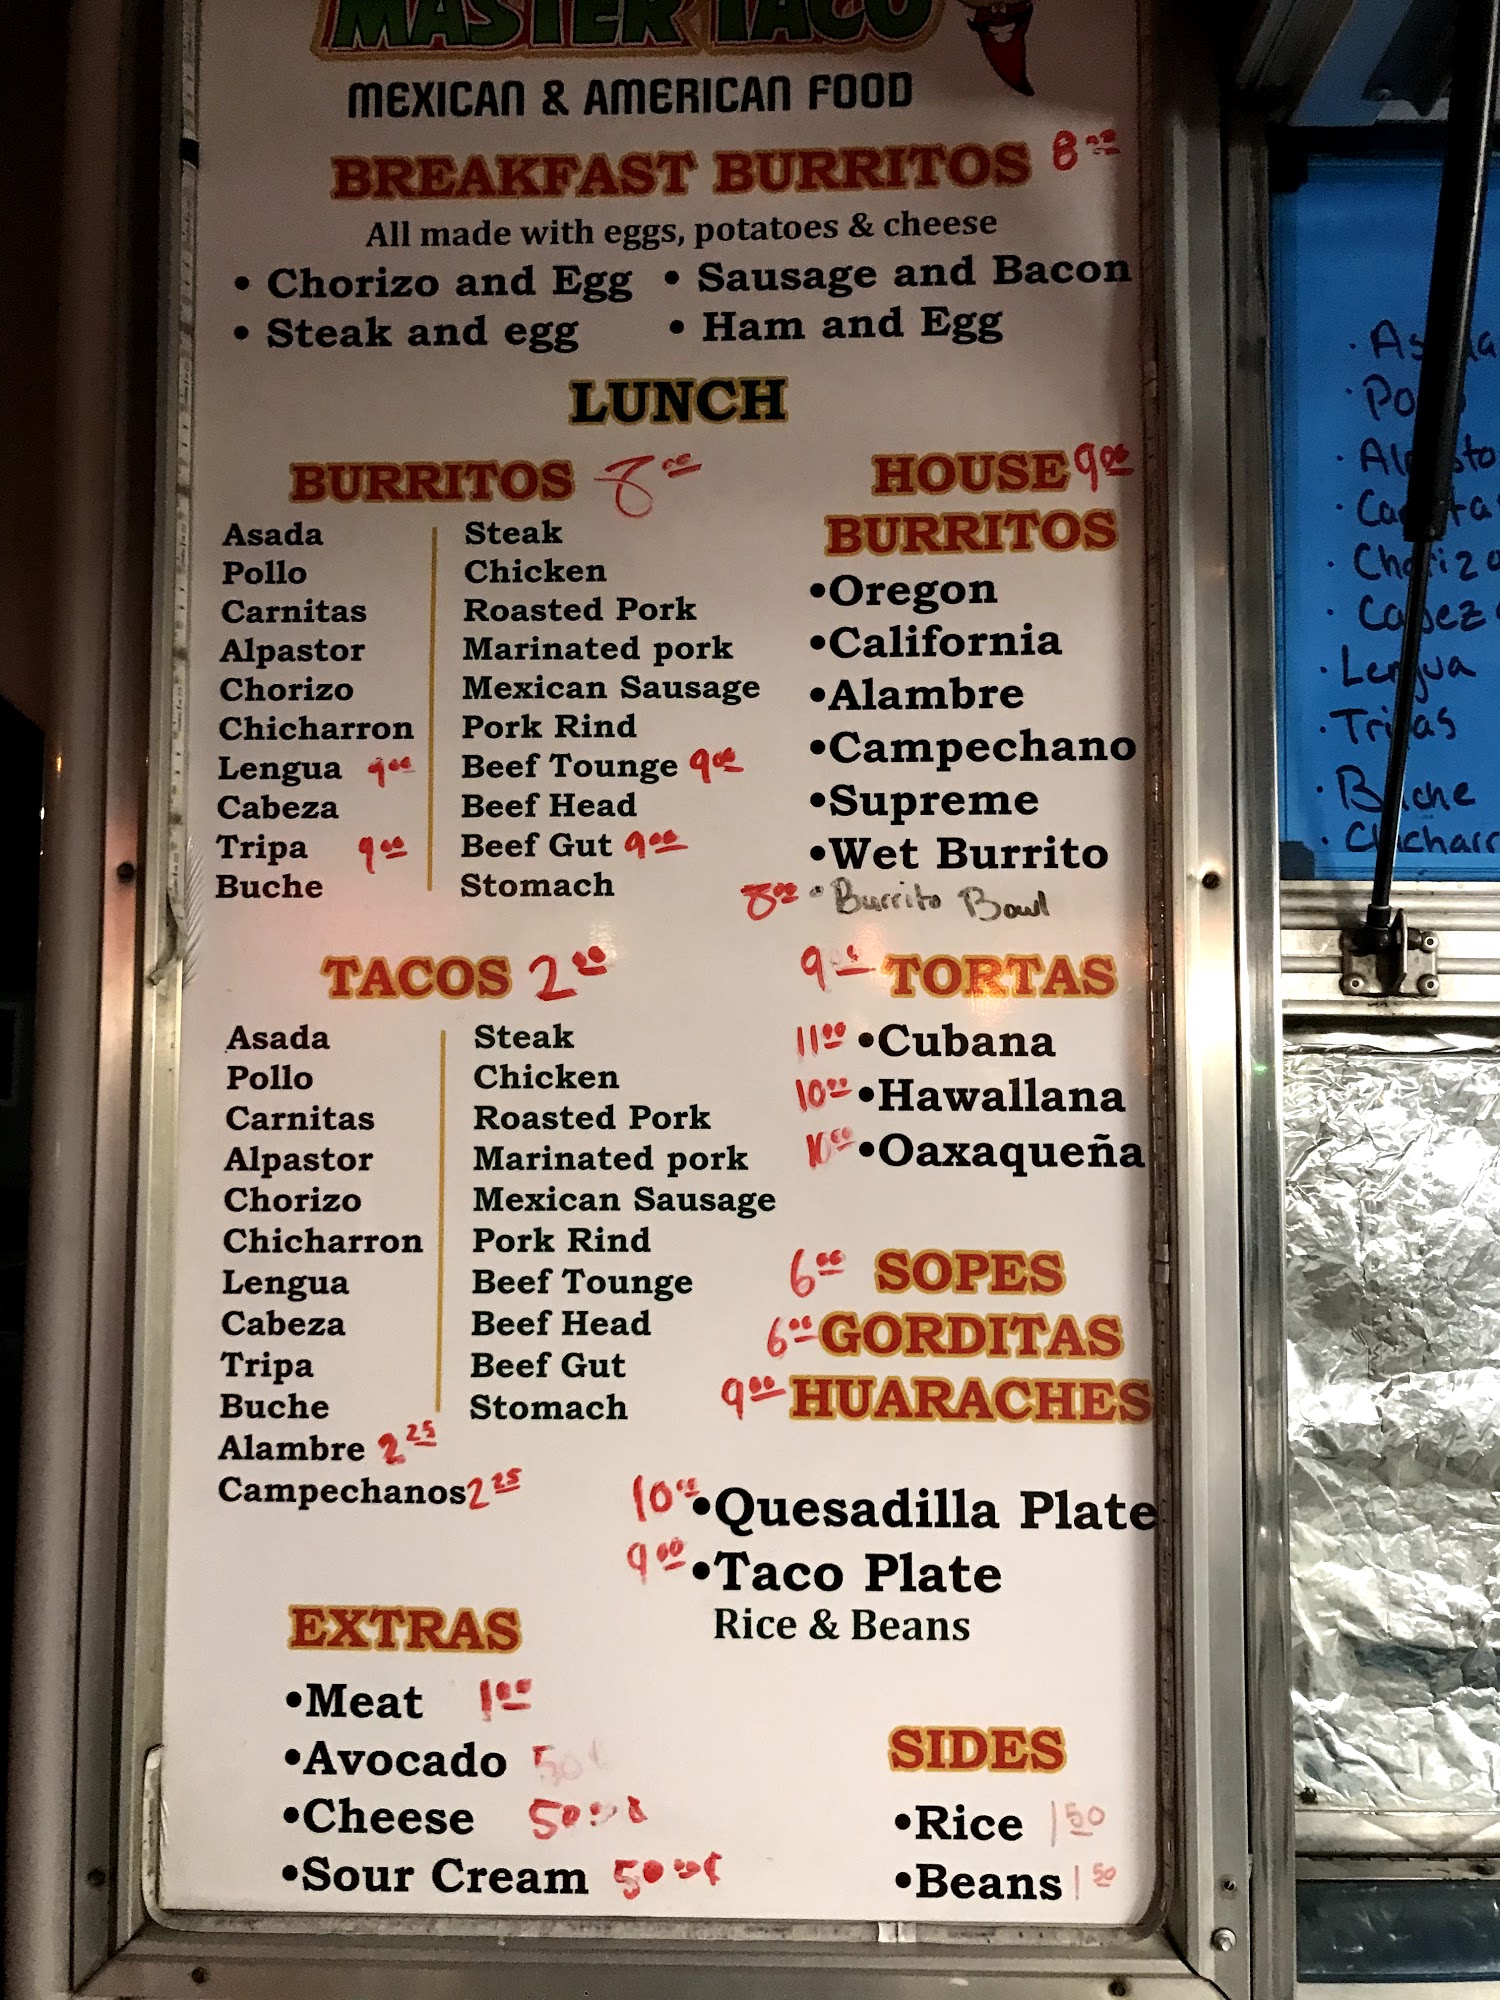 MASTER TACO
MEXICAN & AMERICAN FOOD
BREAKFAST BURRITOS 8.00
All made with eggs, potatoes & cheese
• Chorizo and Egg • Sausage and Bacon
• Steak and egg • Ham and Egg
LUNCH
BURRITOS 8.00
Asada Steak
Pollo Chicken
Carnitas Roasted Pork
Alpastor Marinated pork
Chorizo Mexican Sausage
Chicharron Pork Rind
Lengua 9.00 Beef Tounge 9.00
Cabeza Beef Head
Tripa 9.00 Beef Gut 9.00
Buche Stomach
HOUSE 9.00
BURRITOS
•Oregon
•California
•Alambre
•Campechano
•Supreme
•Wet Burrito
8.00 • Burrito Bowl
TACOS 2.00
Asada Steak
Pollo Chicken
Carnitas Roasted Pork
Alpastor Marinated pork
Chorizo Mexican Sausage
Chicharron Pork Rind
Lengua Beef Tounge
Cabeza Beef Head
Tripa Beef Gut
Buche Stomach
Alambre 2.25
Campechanos 2.25
9.00 TORTAS
11.00 •Cubana
10.00 •Hawallana
10.00 •Oaxaqueña
6.00 SOPES
6.00 GORDITAS
9.00 HUARACHES
10.00 •Quesadilla Plate
9.00 •Taco Plate
Rice & Beans
EXTRAS
•Meat 1.00
•Avocado 50¢
•Cheese 50¢
•Sour Cream 50¢
SIDES
•Rice 1.50
•Beans 1.50
• Lengua
• Tripas
• Buche